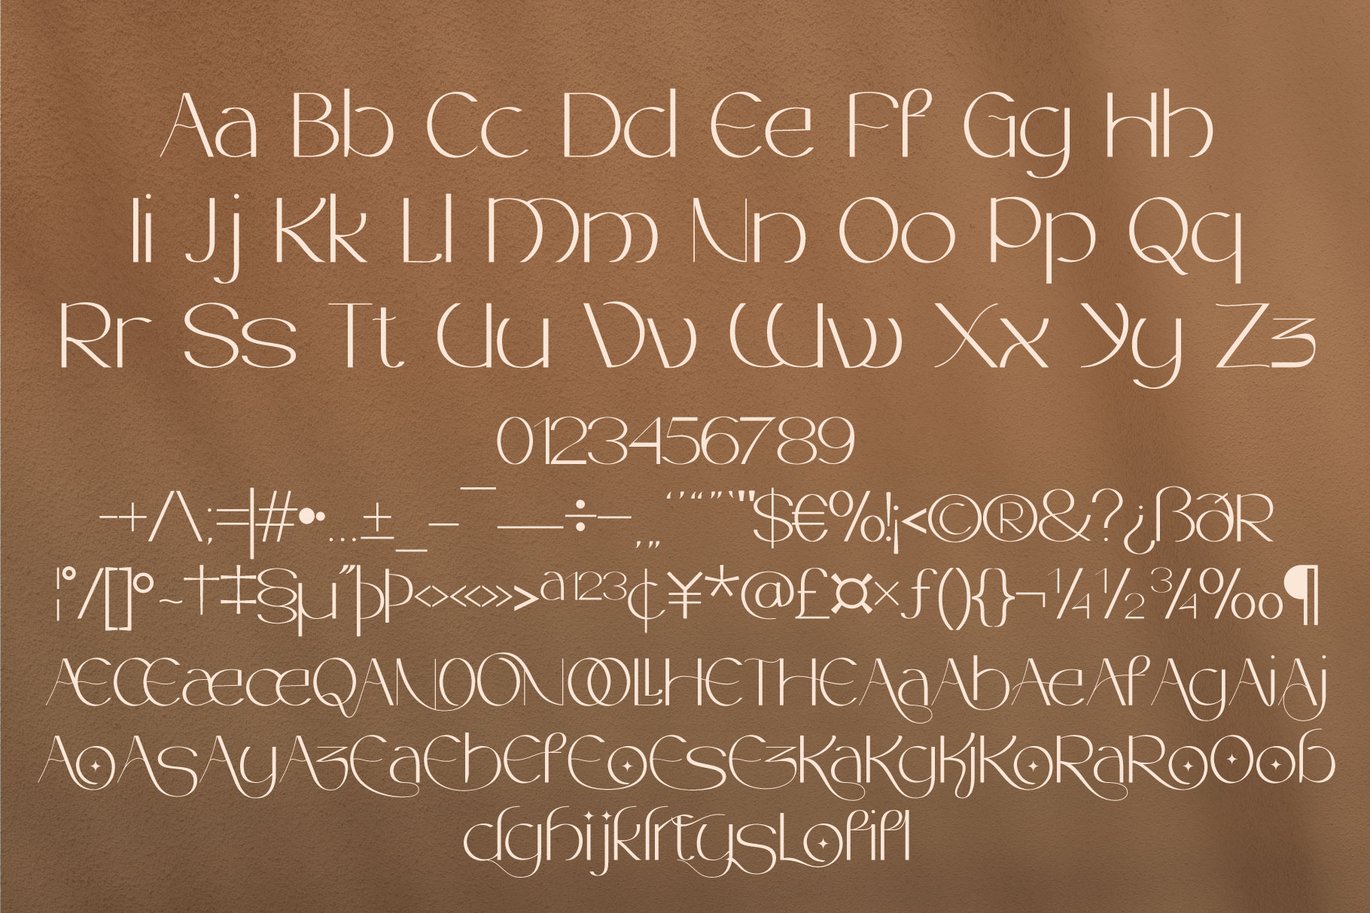 Aa Bb Cc Dd Ee Ff Gg Hh
Ii Jj Kk Ll Mm Nn Oo Pp Qq
Rr Ss Tt Uu Vv Ww Xx Yy Zz
0123456789
-+/\;=|#•·…±_–¯—÷−‚„‘’“”`"$€%!¡<©®&?¿ßðR
¦°/[]°~†‡§µ˝þÞ‹›«»>ª¹²³¢¥*@£¤×ƒ(){}¬¼½¾‰¶
ÆŒæœQANOONOOLLHETHEAaAbAeAfAgAiAj
AoAsAyAzEaEhEfEoEsEzKaKgKjKoRaRoOob
dghijklrtysLofifl